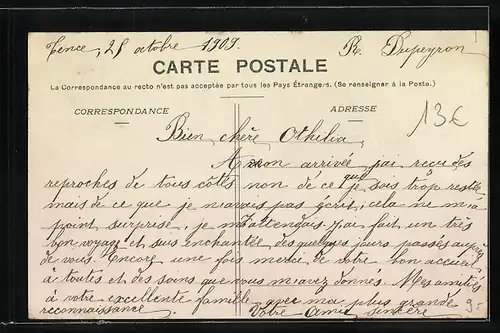 Tence, 28 octobre 1909. R. Dupeyron
CARTE POSTALE
La Correspondance au recto n'est pas acceptée par tous les Pays Étrangers. (Se renseigner à la Poste.)
CORRESPONDANCE ADRESSE
13€
Bien chère Othilia,
A mon arrivée jai recu des
reproches de tous côtés non de ce que je sois trop restée
mais de ce que je n'avais pas écrit, cela ne m'a
point surprise, je m'attendais. J'ai fait un très
bon voyage et suis enchantée des quelques jours passés auprès
de vous. Encore une fois merci de votre bon accueil
à toutes et des soins que vous m'avez donnés. Mes amitiés
à votre excellente famille avec ma plus grande
reconnaissance. Votre Amie sincère
9-